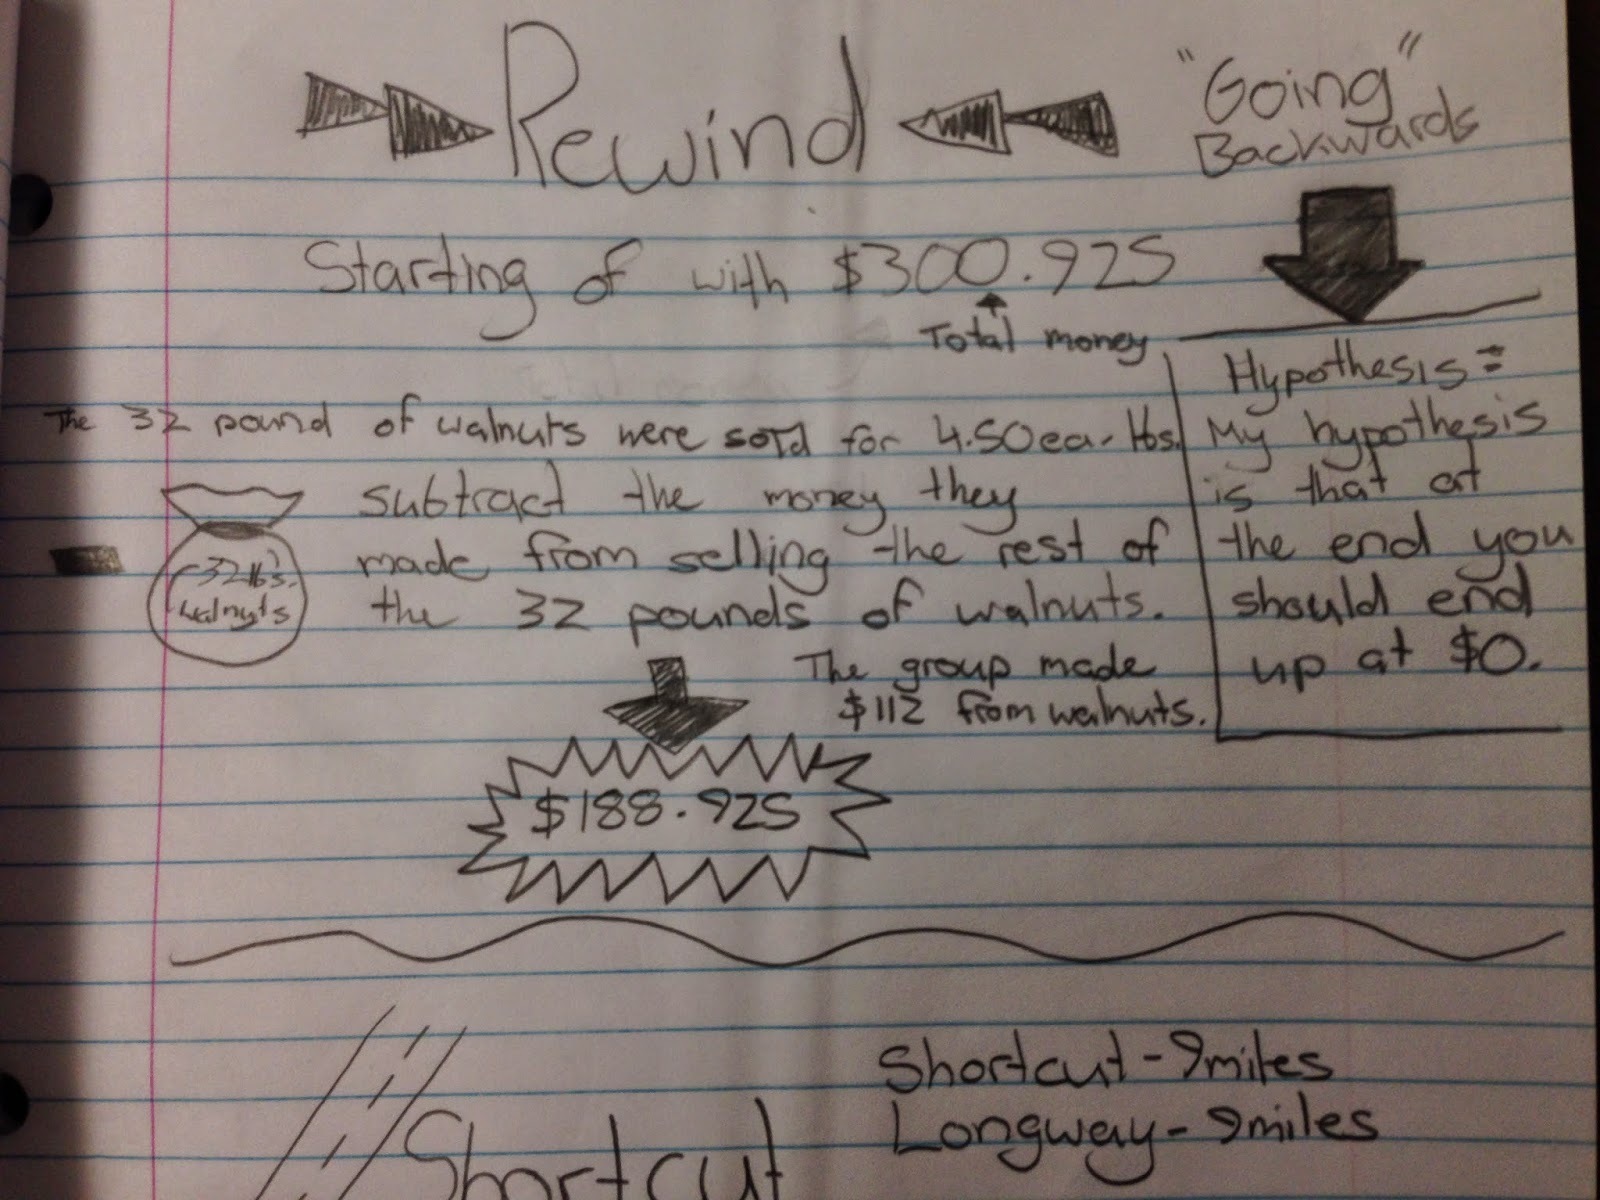 Rewind
"Going"
Backwards
Starting of with $300.925
Total money
Hypothesis =
My hypothesis
is that at
the end you
should end
up at $0.
The 32 pound of walnuts were sold for 4.50ea. lbs.
subtract the money they
made from selling the rest of
the 32 pounds of walnuts.
32lbs.
walnuts
The group made
$112 from walnuts.
$188.925
Shortcut - 9miles
Longway - 9miles
Shortcut